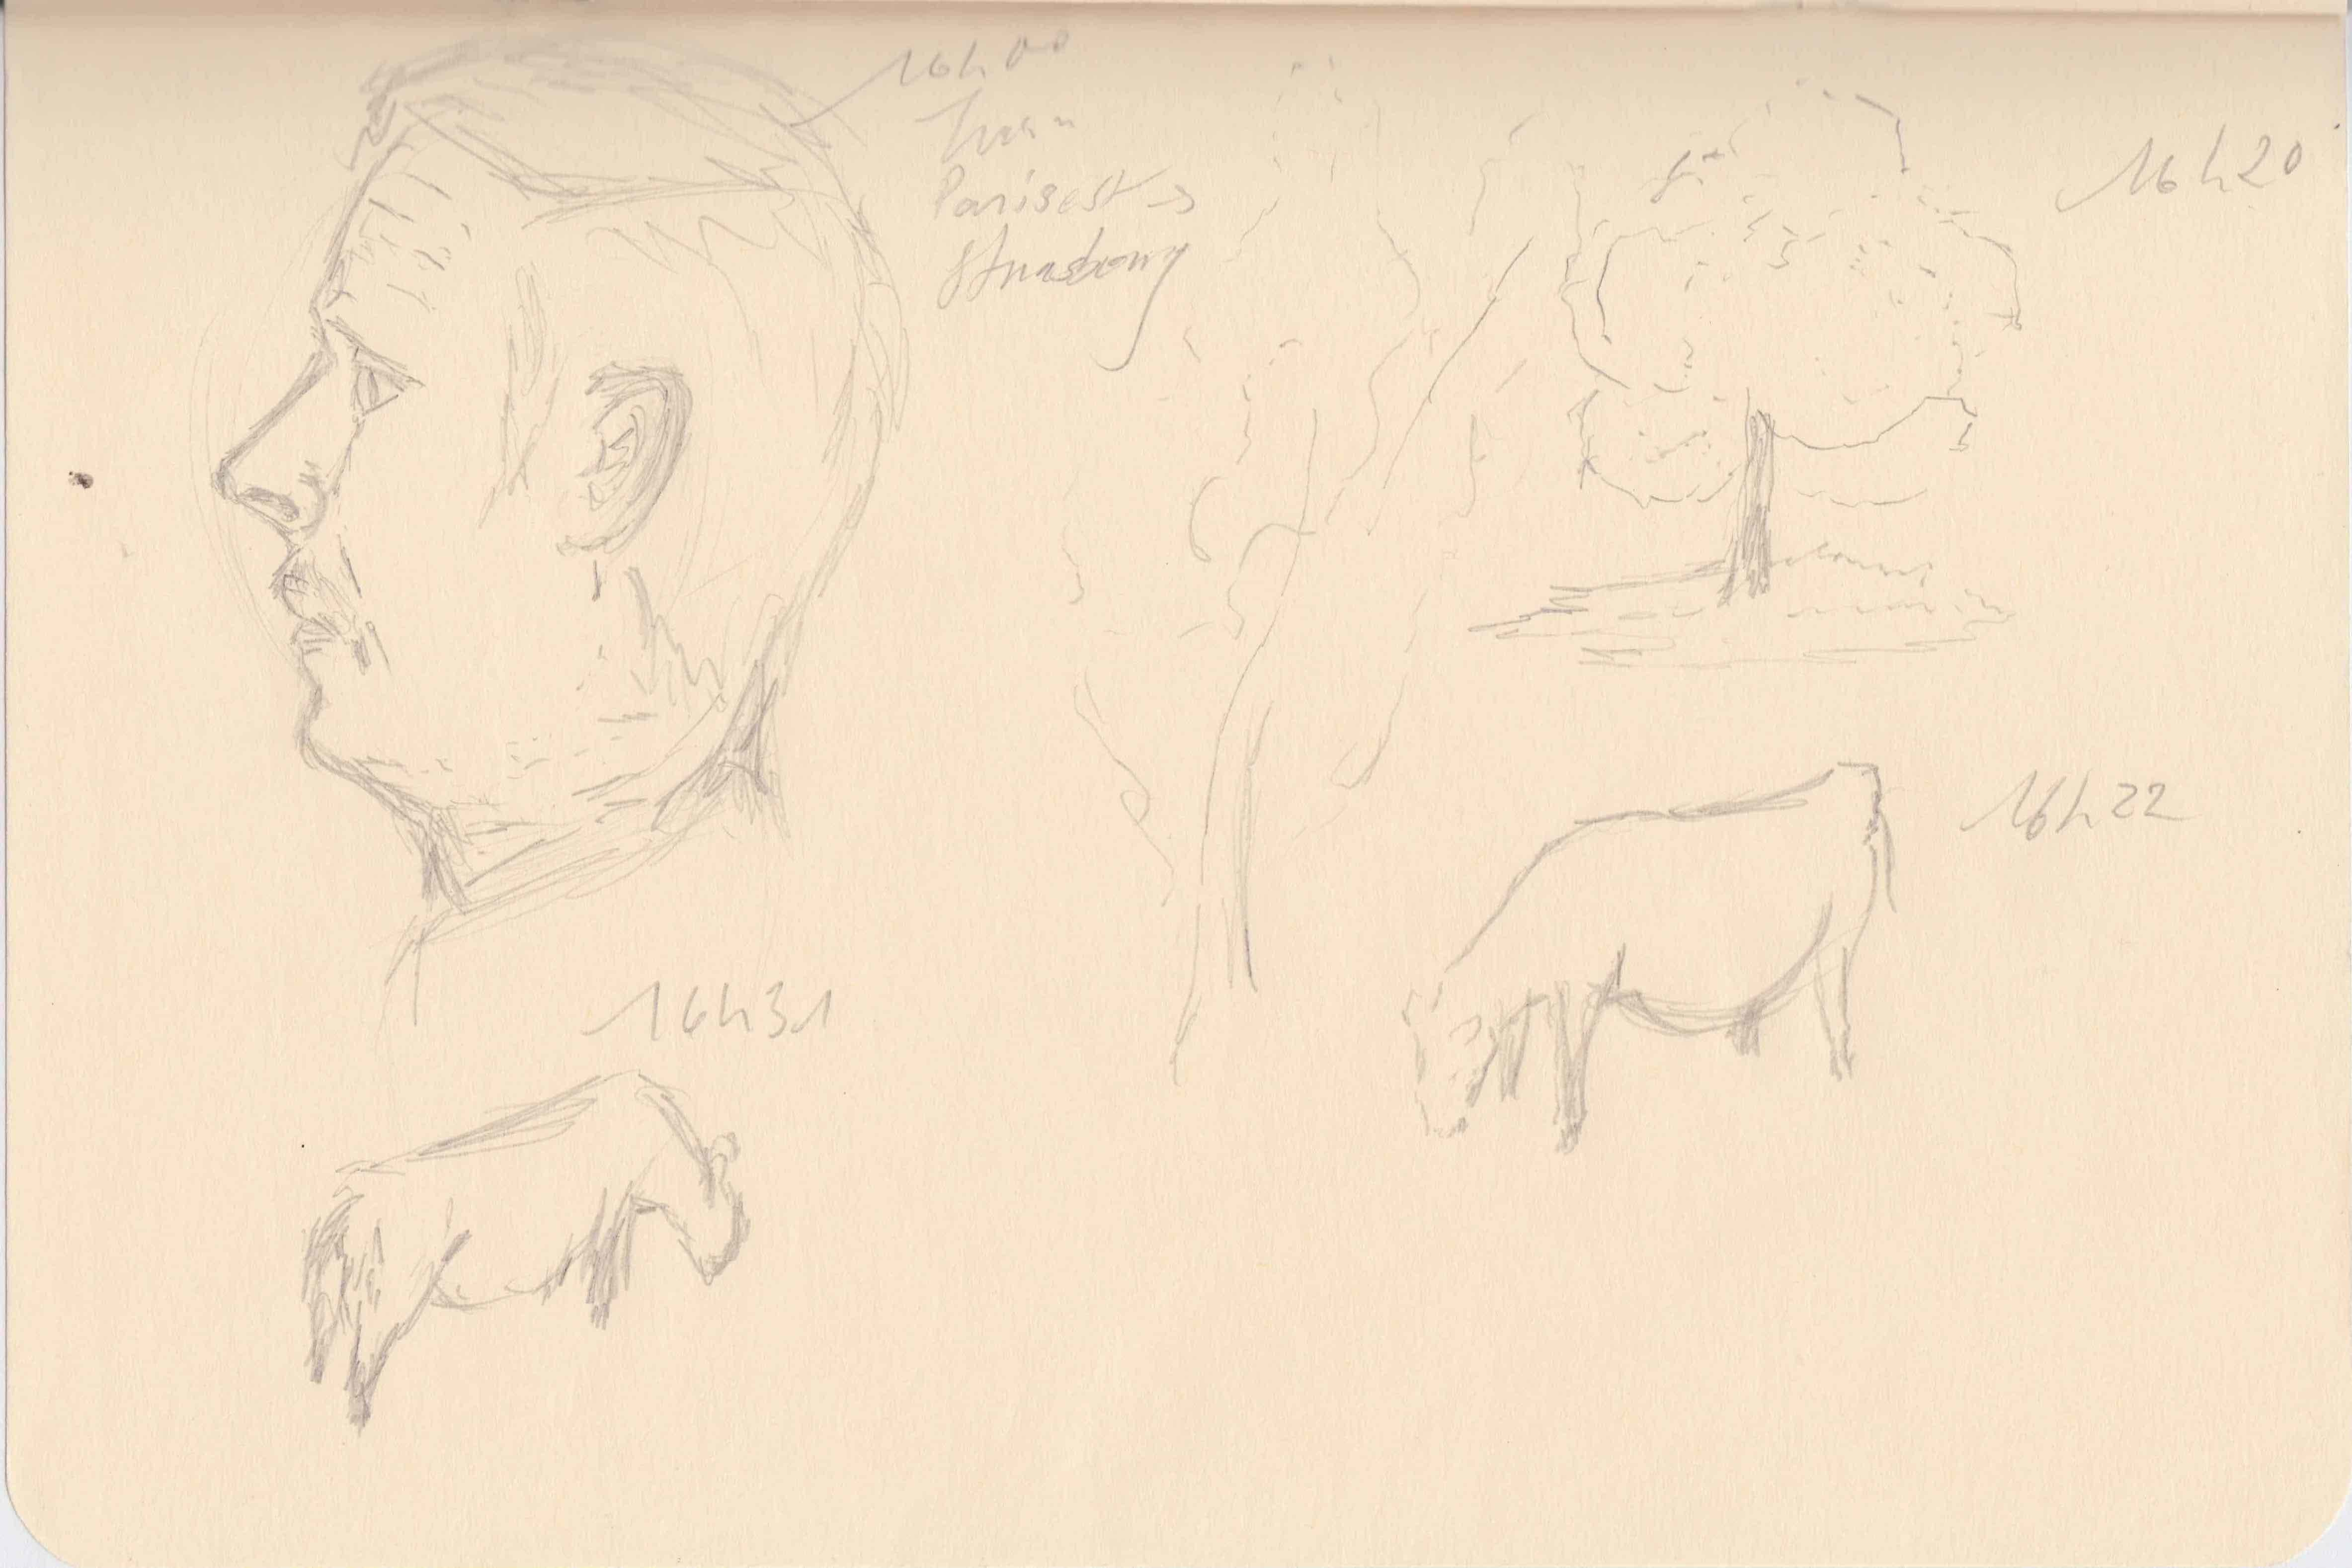 16h00
Train
Paris est →
Strasbourg
16h20
16h22
16h31